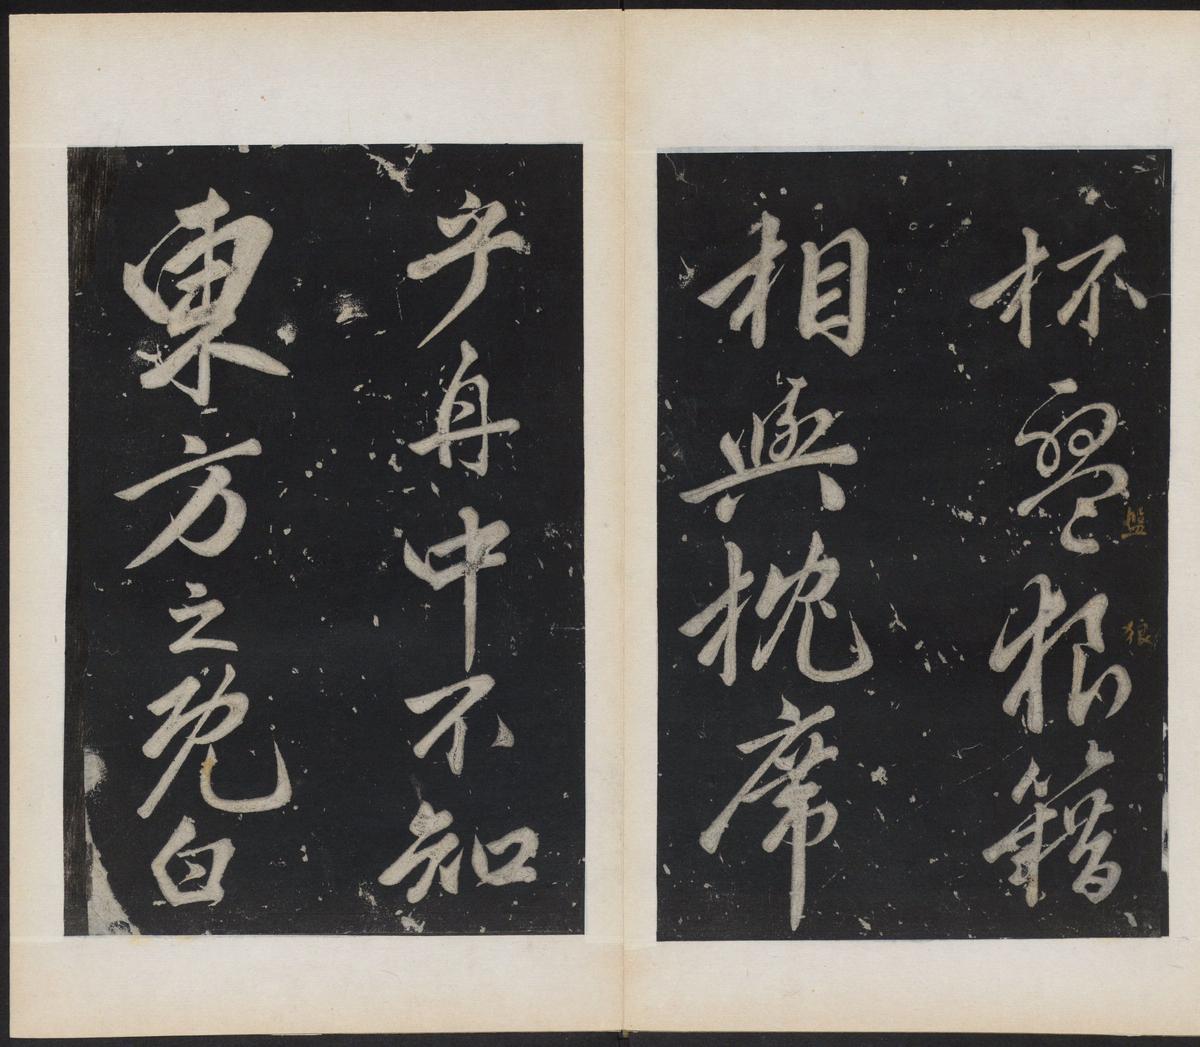 杯盤狼籍
盤
狼
相與枕席
乎舟中不知
東方之既白